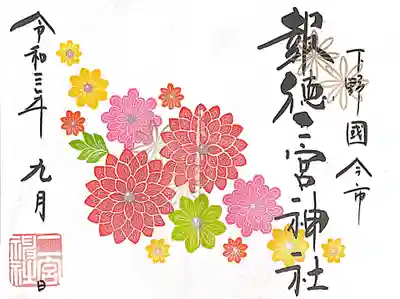 下野國今市
報徳二宮神社
令和三年 九月 日
二宮神社